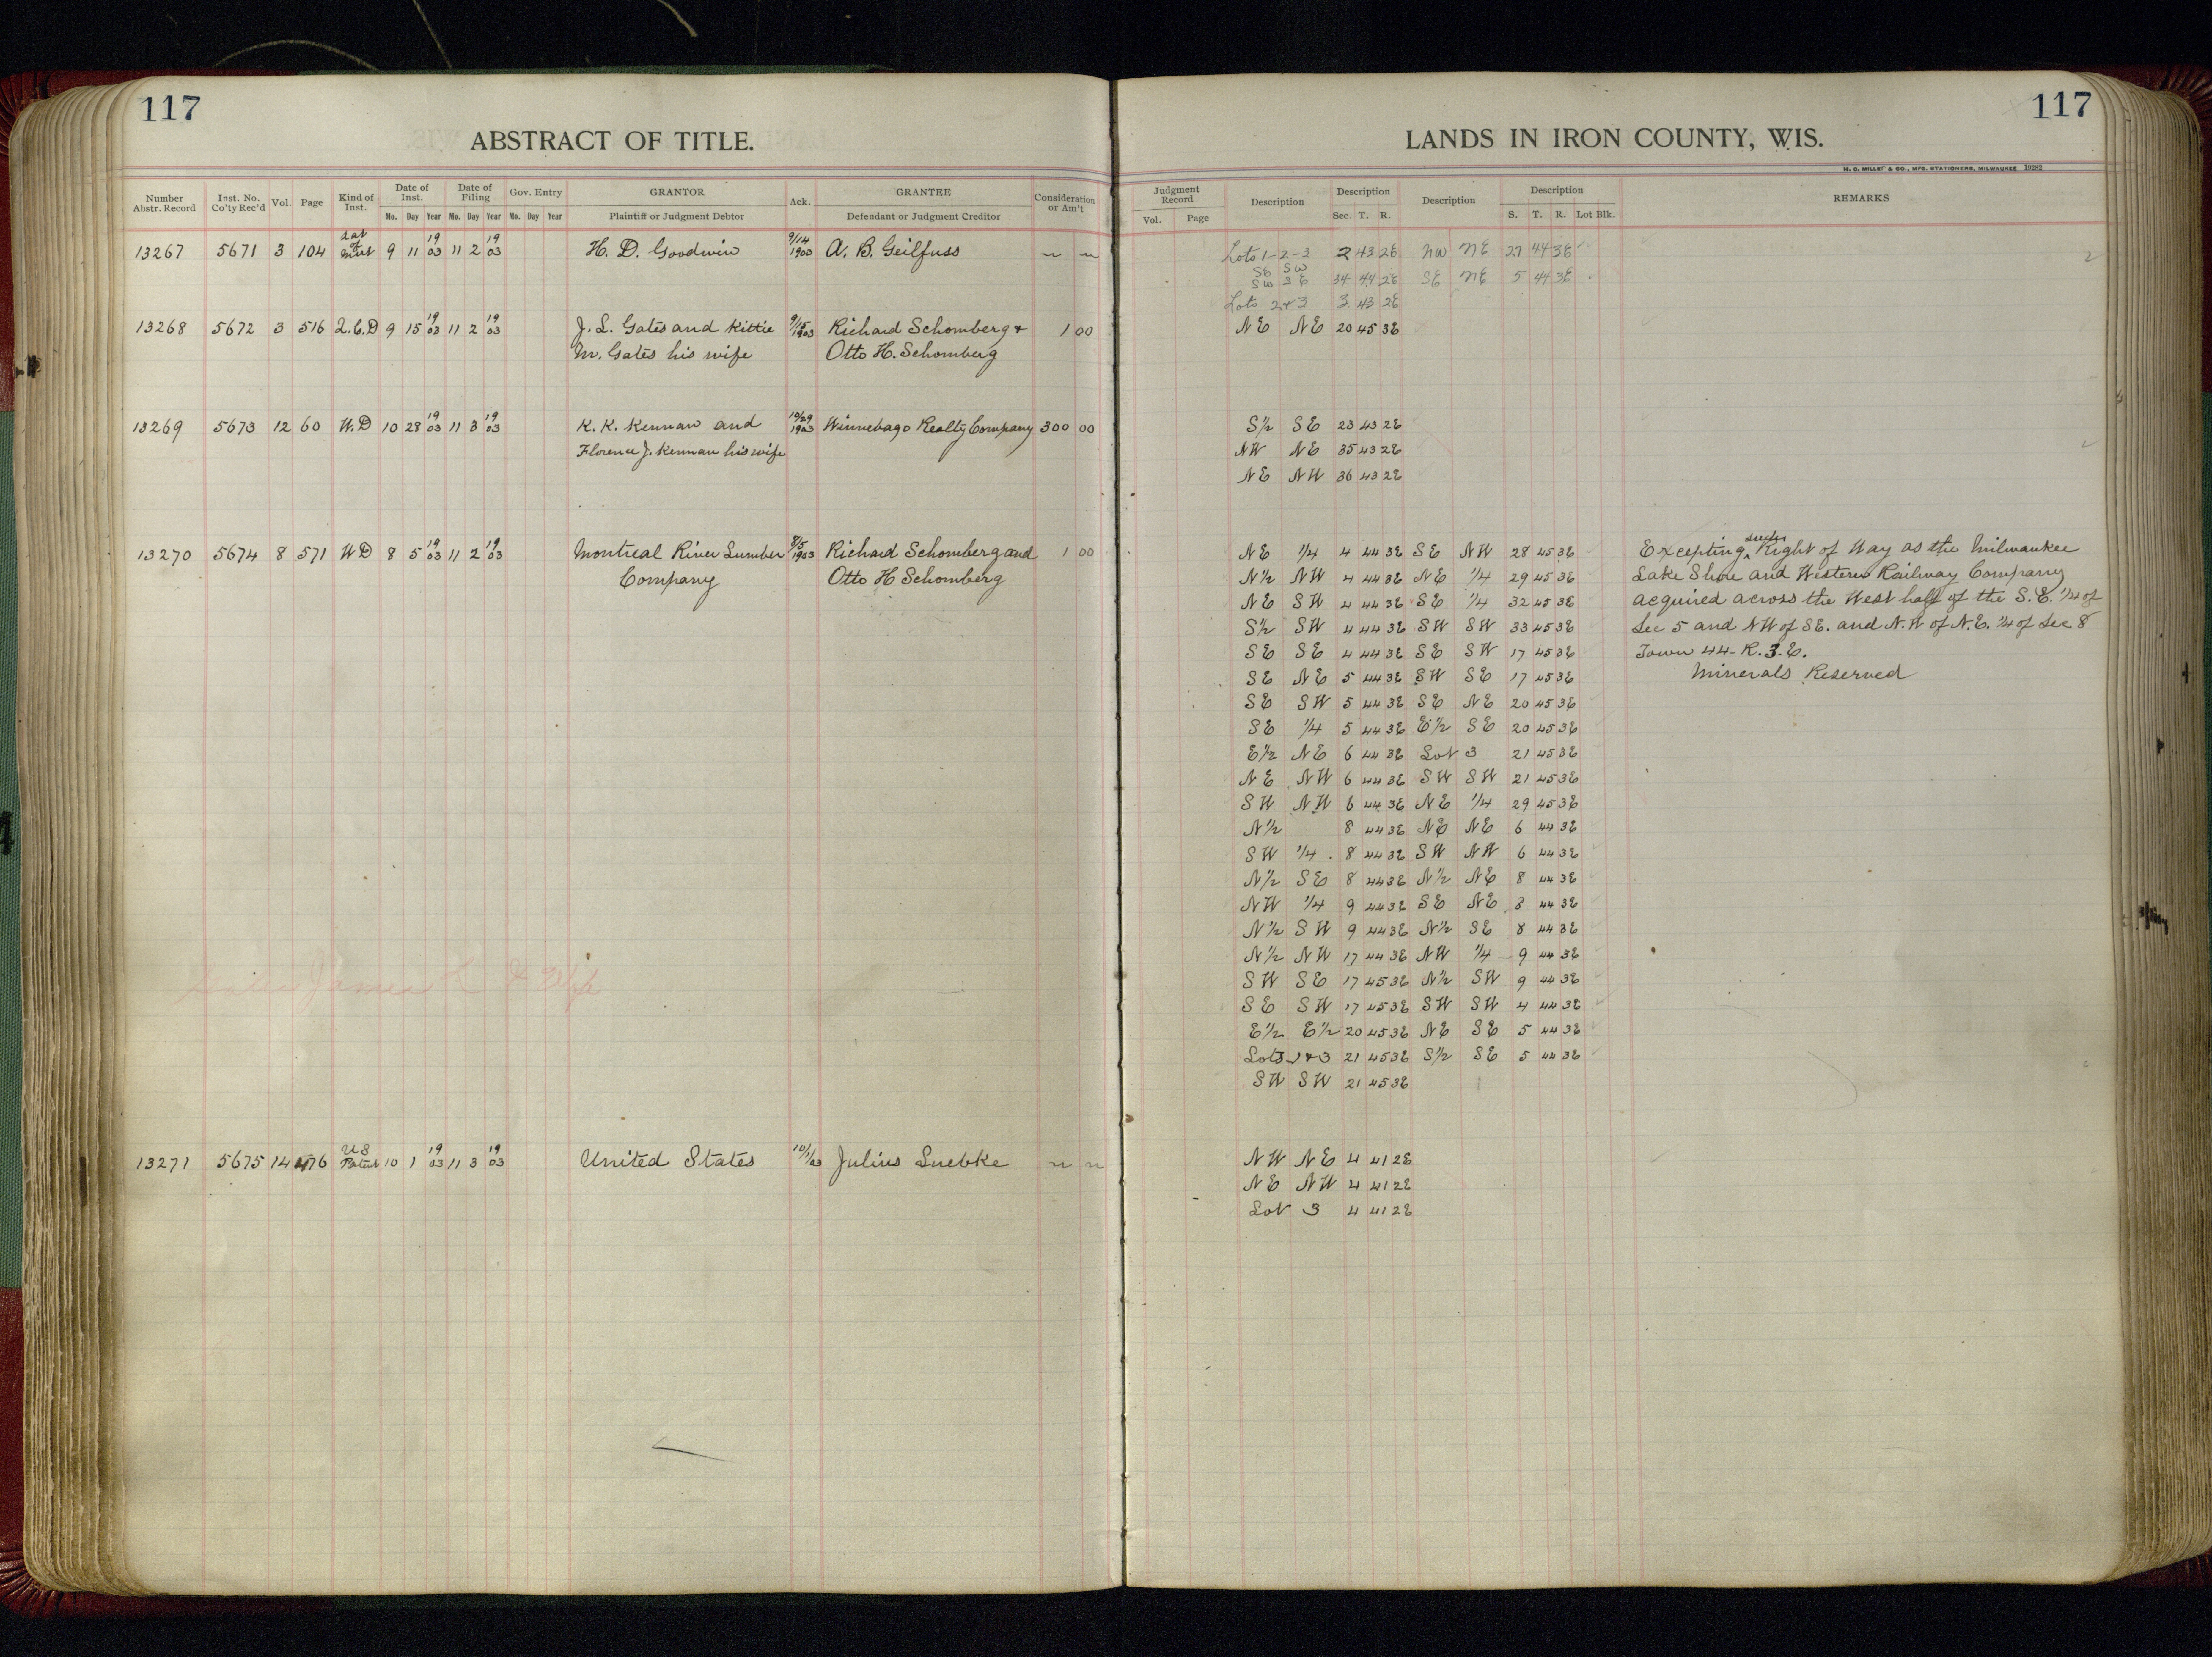 117
ABSTRACT OF TITLE.
Number Abstr. Record Inst. No. Co'ty Rec'd Vol. Page Kind of Inst. Date of Inst. Mo. Day Year Date of Filing Mo. Day Year Gov. Entry Mo. Day Year GRANTOR Plaintiff or Judgment Debtor Ack. GRANTEE Defendant or Judgment Creditor Consideration or Am't
13267 5671 3 104 Sat of Mort 9 11 1903 11 2 1903 H. D. Goodwin 9/14 1903 A. B. Geilfuss
13268 5672 3 516 Q.C.D 9 15 1903 11 2 1903 J. L. Gates and Kittie 9/15 1903 Richard Schomberg & 1 00
M. Gates his wife Otto H. Schomberg
13269 5673 12 60 W.D 10 28 1903 11 3 1903 K. K. Kennan and 10/29 1903 Winnebago Realty Company 300 00
Florence J. Kennan his wife
13270 5674 8 571 WD 8 5 1903 11 2 1903 Montreal River Lumber 8/5 1903 Richard Schomberg and 1 00
Company Otto H Schomberg
Gates James L & Wife
13271 5675 14 476 US Patent 10 1 1903 11 3 1903 United States 10/1/03 Julius Luebke
117
LANDS IN IRON COUNTY, WIS.
H. C. MILLER & CO., MFG. STATIONERS, MILWAUKEE 19282
Judgment Record Vol. Page Description Description Sec. T. R. Description Description S. T. R. Lot Blk. REMARKS
Lots 1-2-3 2 43 2E NW NE 27 44 3E
SE SW
SW SE 34 44 2E SE NE 5 44 3E
Lots 2&3 3 43 2E
NE NE 20 45 3E
S½ SE 23 43 2E
NW NE 35 43 2E
NE NW 36 43 2E
NE ¼ 4 44 3E SE NW 28 45 3E Excepting such Right of Way as the Milwaukee
N½ NW 4 44 3E NE ¼ 29 45 3E Lake Shore and Western Railway Company
NE SW 4 44 3E SE ¼ 32 45 3E acquired across the West half of the S.E. ¼ of
S½ SW 4 44 3E SW SW 33 45 3E Sec 5 and NW of SE. and N.W of N.E. ¼ of Sec 8
SE SE 4 44 3E SE SW 17 45 3E Town 44- R.3.E.
SE NE 5 44 3E SW SE 17 45 3E Minerals Reserved
SE SW 5 44 3E SE NE 20 45 3E
SE ¼ 5 44 3E E½ SE 20 45 3E
E½ NE 6 44 3E Lot 3 21 45 3E
NE NW 6 44 3E SW SW 21 45 3E
SW NW 6 44 3E NE ¼ 29 45 3E
N½ 8 44 3E NE NE 6 44 3E
SW ¼ 8 44 3E SW NW 6 44 3E
N½ SE 8 44 3E N½ NE 8 44 3E
NW ¼ 9 44 3E SE NE 8 44 3E
N½ SW 9 44 3E N½ SE 8 44 3E
N½ NW 17 44 3E NW ¼ 9 44 3E
SW SE 17 45 3E N½ SW 9 44 3E
SE SW 17 45 3E SW SW 4 44 3E
E½ E½ 20 45 3E NE SE 5 44 3E
Lots 1&3 21 45 3E S½ SE 5 44 3E
SW SW 21 45 3E
NW NE 4 41 2E
NE NW 4 41 2E
Lot 3 4 41 2E